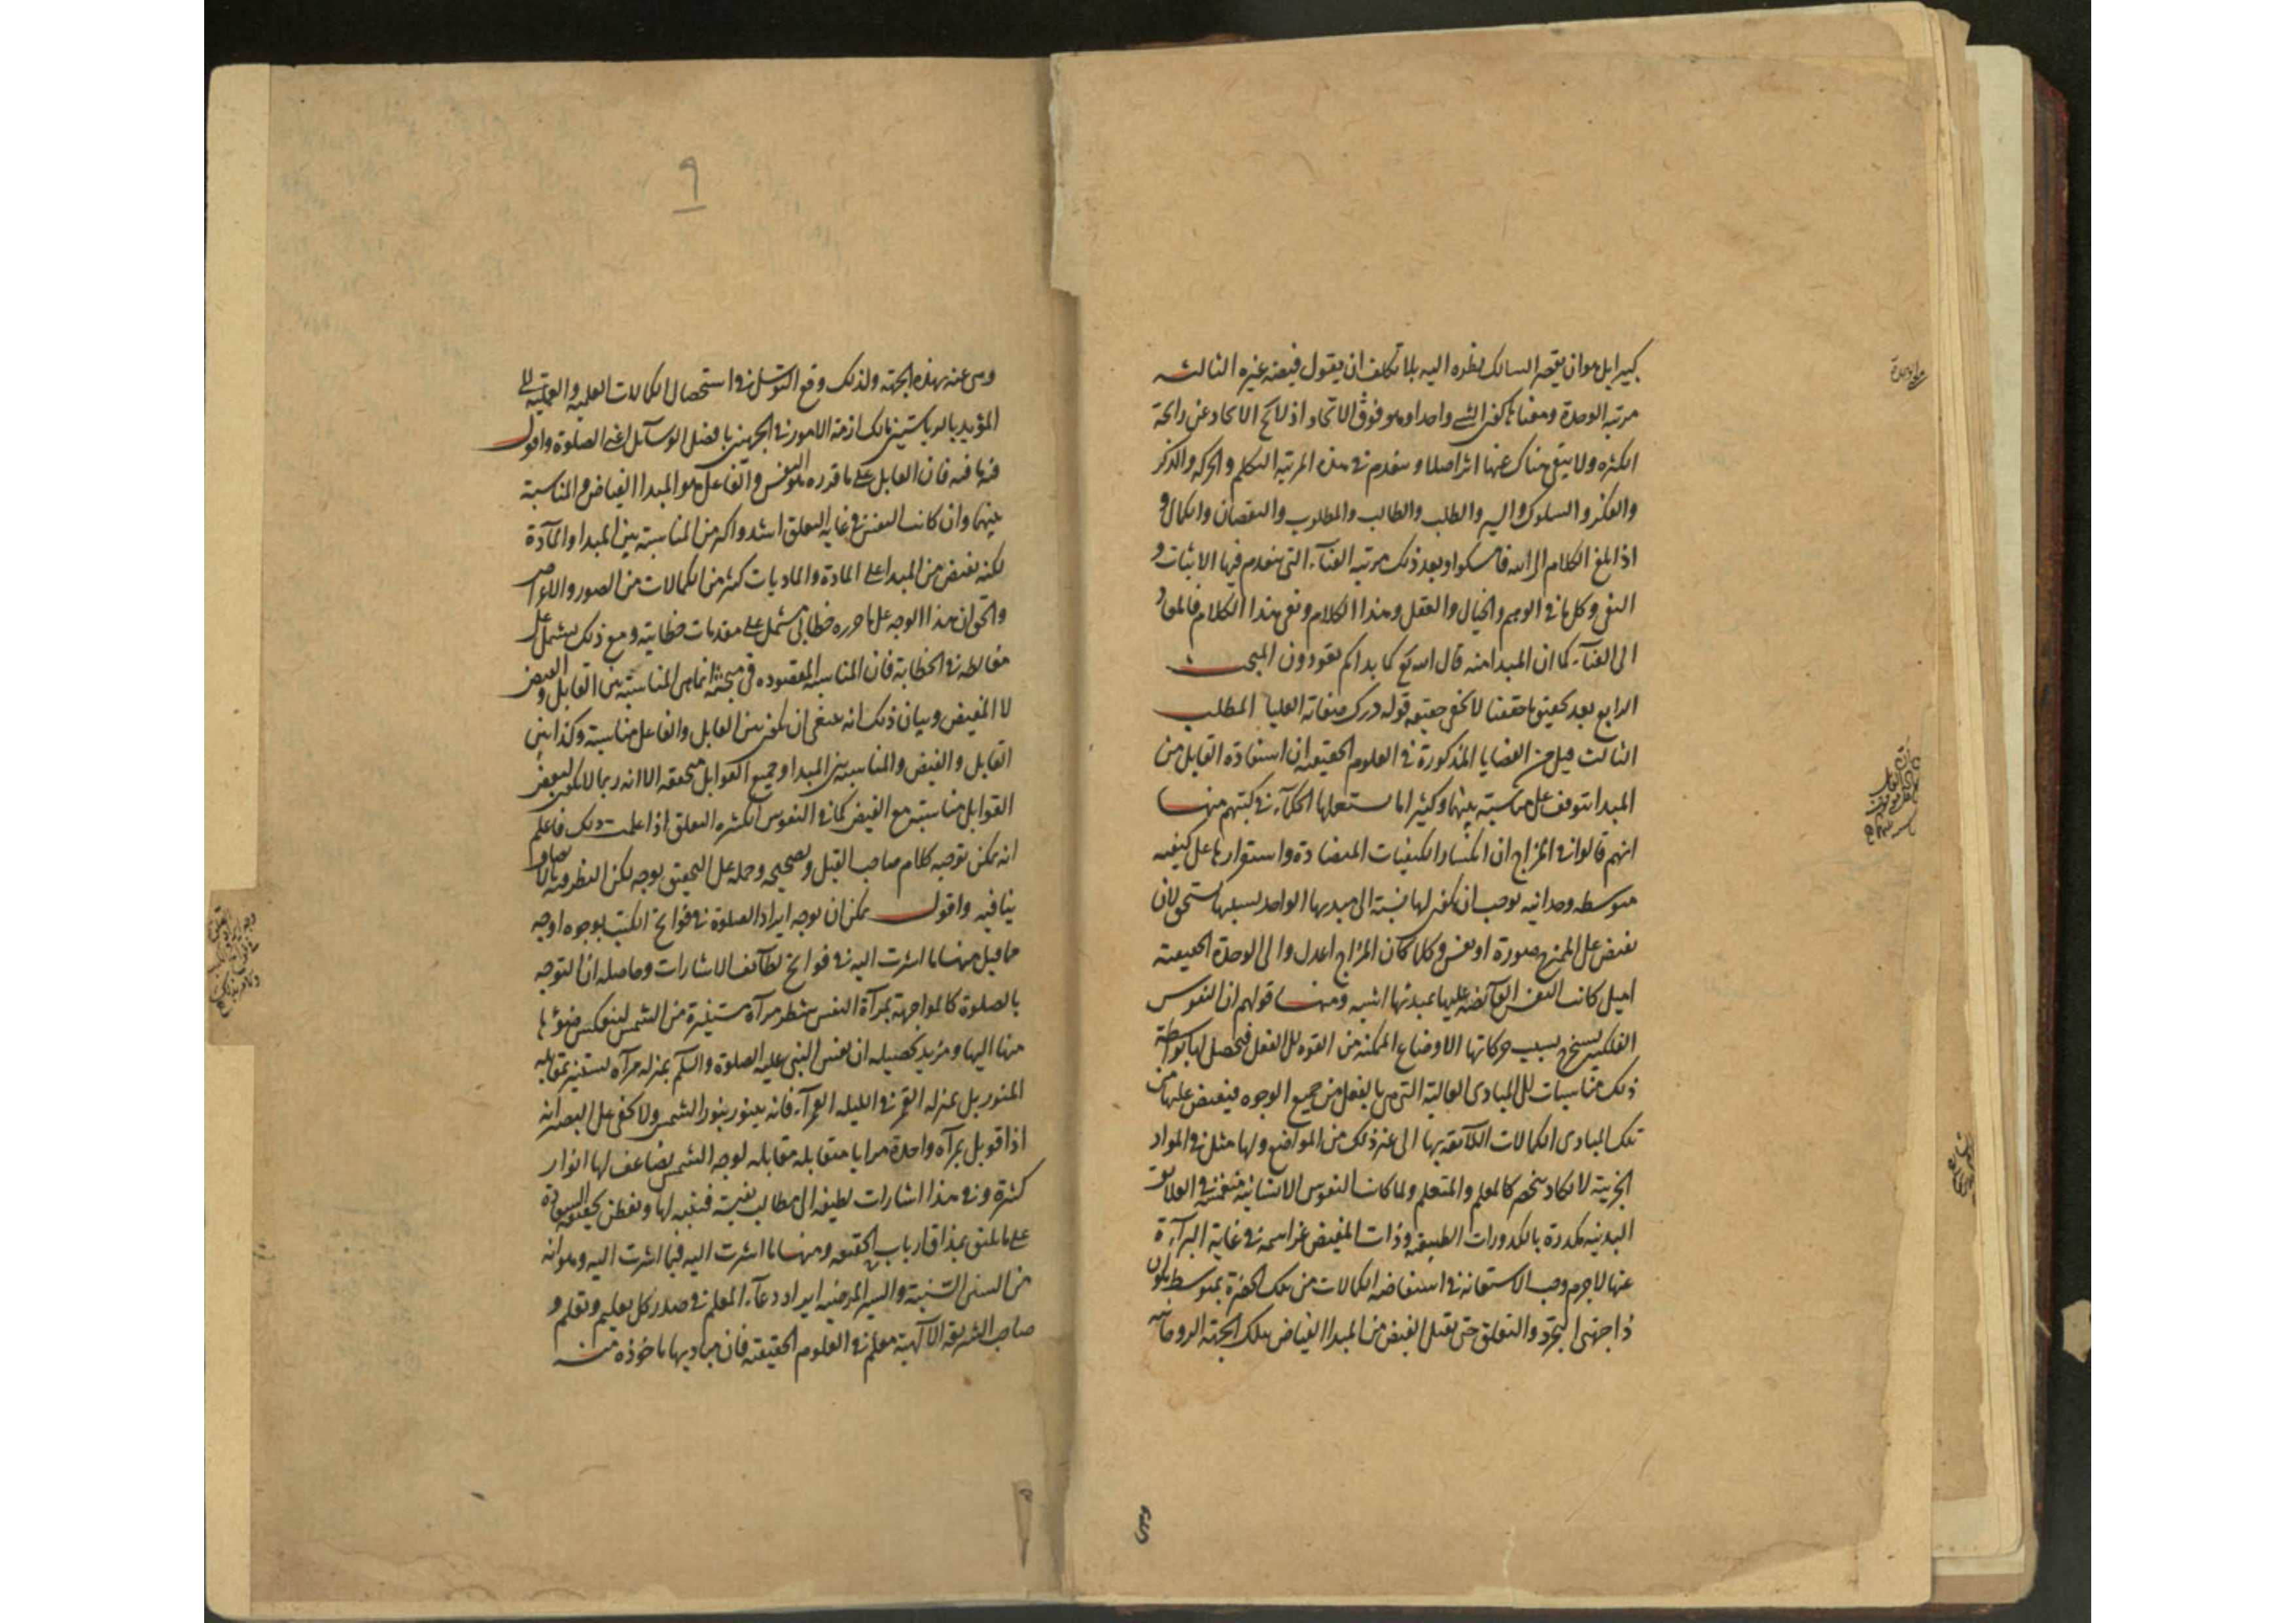 كبير ايل هو ان يقصر السالك نظره اليه بلا تكلف ان يقول فيضه غيره الثالثه
مرتبه الوحدة ومعناها كون الشئ واحدا وهو فوق الاتحاد اذ لائح الاتحاد عن رائحة
الكثره ولا يبقى هناك عنها اثر اصلا وينعدم في هذه المرتبه التكلم والحركه والذكر
والفكر والسلوك والسير والطلب والطالب والمطلوب والنقصان والكمال و
اذا بلغ الكلام الى الله فامسكوا وبعد ذلك مرتبه الفنآء التى ينعدم فيها الاثبات و
النفى وكل ما فى الوهم والخيال والعقل وهذا الكلام ونفى هذا الكلام فالمعاد
الى الفنآء كما ان المبدا منه قال الله تع كما بداكم تعودون المبحث
الرابع بعد تحقيق ما حققنا لا يخفى حقيقه قوله درك صفاته العليا المطلب
الثالث قيل من القضايا المذكورة فى العلوم الحقيقيه ان استفادة القابل من
المبدا يتوقف على مناسبة بينهما وكثيرا ما يستعملها الحكمآء فى كتبهم منها
انهم قالوا فى المزاج ان انكسار الكيفيات المتضادة واستقرارها على كيفيه
متوسطه وحدانيه يوجب ان يكون لها نسبة الى مبديها الواحد بسببها يستحق لان
يفيض على الممتزج صورة او نفس وكلما كان المزاج اعدل والى الوحدة الحقيقيه
اميل كانت النفس الفائضه عليها بمبدئها اشبه ومنها قولهم ان النفوس
الفلكيه يستخرج بسبب حركاتها الاوضاع الممكنه من القوه الى الفعل فيحصل لها بواسطة
ذلك مناسبات الى المبادى العالية التى هى بالفعل من جميع الوجوه فيفيض عليها من
تلك المبادى الكمالات اللآئقه بها الى غير ذلك من المواضع ولها مثل فى المواد
الجزئية لا يكاد ينحصر كالمعلم والمتعلم ولما كانت النفوس الانسانيه منغمسه فى العلائق
البدنيه مكدرة بالكدورات الطبيعيه وذات المفيض عز اسمه فى غاية البرآءة
عنها لا جرم وجب الاستعانه فى استفاضه الكمالات من تلك الحضرة بمتوسط يكون
ذا جهتى التجرد والتعلق حتى يقبل الفيض من المبدا الفياض بتلك الجهة الروحانيه
وهى
وهى عنه بهذه الجهة ولذلك وقع التوسل فى استحصال الكمالات العلميه والعمليه الى
المؤيد بالرياستين مالك ازمة الامور فى الجهتين بافضل الوسآئل اعنى الصلوة واقول
فيه ما فيه فان القابل على ما قرره هو النفس والفاعل هو المبدا الفياض والمناسبة
بينهما وان كانت النفس فى غايه التعلق اشد واكد من المناسبة بين المبدا والمآدة
لكنه يفيض من المبدا على المادة والماديات كثير من الكمالات من الصور والاعراض
والحق ان هذا الوجه على ما حرره خطابى مشتمل على مقدمات خطابيه ومع ذلك يشتمل على
مغالطه فى الخطابة فان المناسبة المقصوده فى مبحثه انما هى المناسبة بين القابل والفيض
لا المفيض وبيان ذلك انه ينبغى ان يكون بين القابل والفاعل مناسبة وكذا بين
القابل والفيض والمناسبة بين المبدا وجميع القوابل متحققه الا انه ربما لا يكون لبعض
القوابل مناسبة مع الفيض كما فى النفوس الكثيره التعلق اذا علمت ذلك فاعلم
انه يمكن توجيه كلام صاحب القيل وتصحيحه وحمله على التحقيق بوجه لكن النظر فيه
ينافيه واقول يمكن ان يوجه ايراد الصلوة فى فواتح الكتب بوجوه اوجه
مما قيل منها ما اشرت اليه فى فواتح لطآئف الاشارات وحاصله ان التوجه
بالصلوة كالمواجهة بمرآة النفس شطر مرآة مستنيرة من الشمس لينعكس ضوؤها
منها اليها ومزيد تحصيله ان نفس النبى عليه الصلوة والسلم بمنزله مرآه تستنير بمقابله
المنور بل بمنزله القمر فى الليله القمرآء فانه يتنور بنور الشمس ولا يخفى على البصر انه
اذا قوبل بمرآه واحدة مرايا متقابله مقابله لوجه الشمس يضاعف لها انوار
كثيرة وفى هذا اشارات لطيفه الى مطالب نفيسة فتنبه لها وتفطن بحقيقه السعادة
على ما يليق بمذاق ارباب الحقيقه ومنها ما اشرت اليه فيما اشرت اليه وهو انه
من السنن السنية والسير المرضيه ايراد دعآء المعلم فى صدر كل تعليم وتعلم و
صاحب الشريعه الالهية معلم فى العلوم الحقيقيه فان مباديها ماخوذه منه
٩